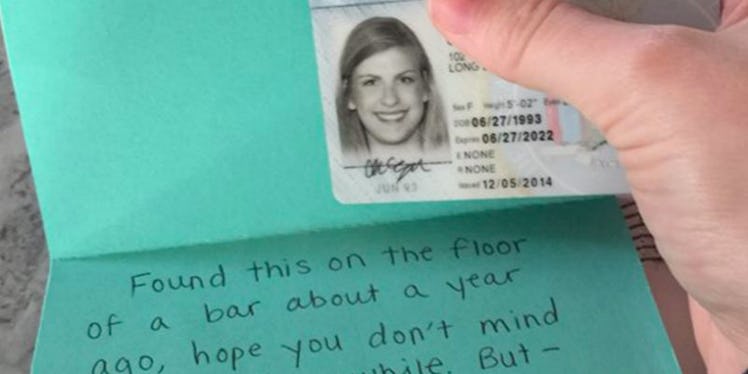 102
LONG
Sex F Height 5'-02" Eyes
DOB 06/27/1993
Expires 06/27/2022
E NONE
R NONE
Issued 12/05/2014
JUN 93
Found this on the floor
of a bar about a year
ago, hope you don't mind
while. But -